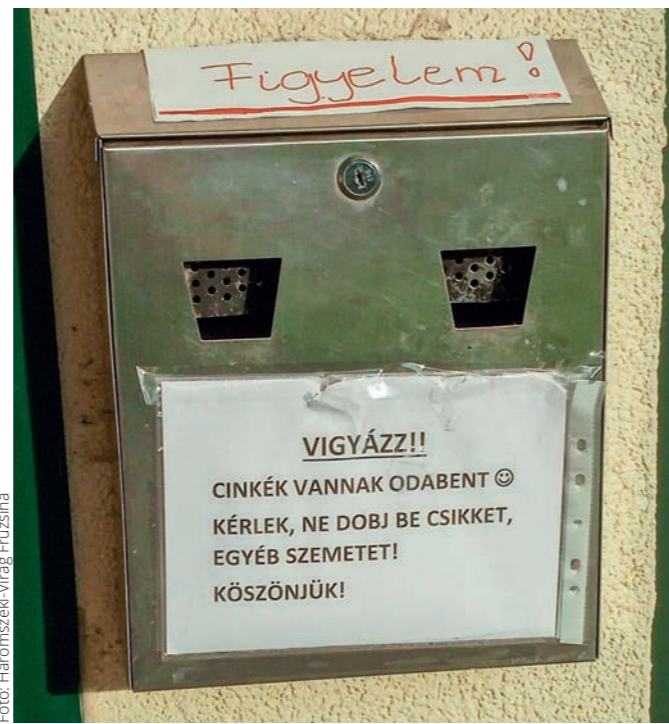 Figyelem!
VIGYÁZZ!!
CINKÉK VANNAK ODABENT ☺
KÉRLEK, NE DOBJ BE CSIKKET,
EGYÉB SZEMETET!
KÖSZÖNJÜK!
Fotó: Háromszéki-Virág Fruzsina